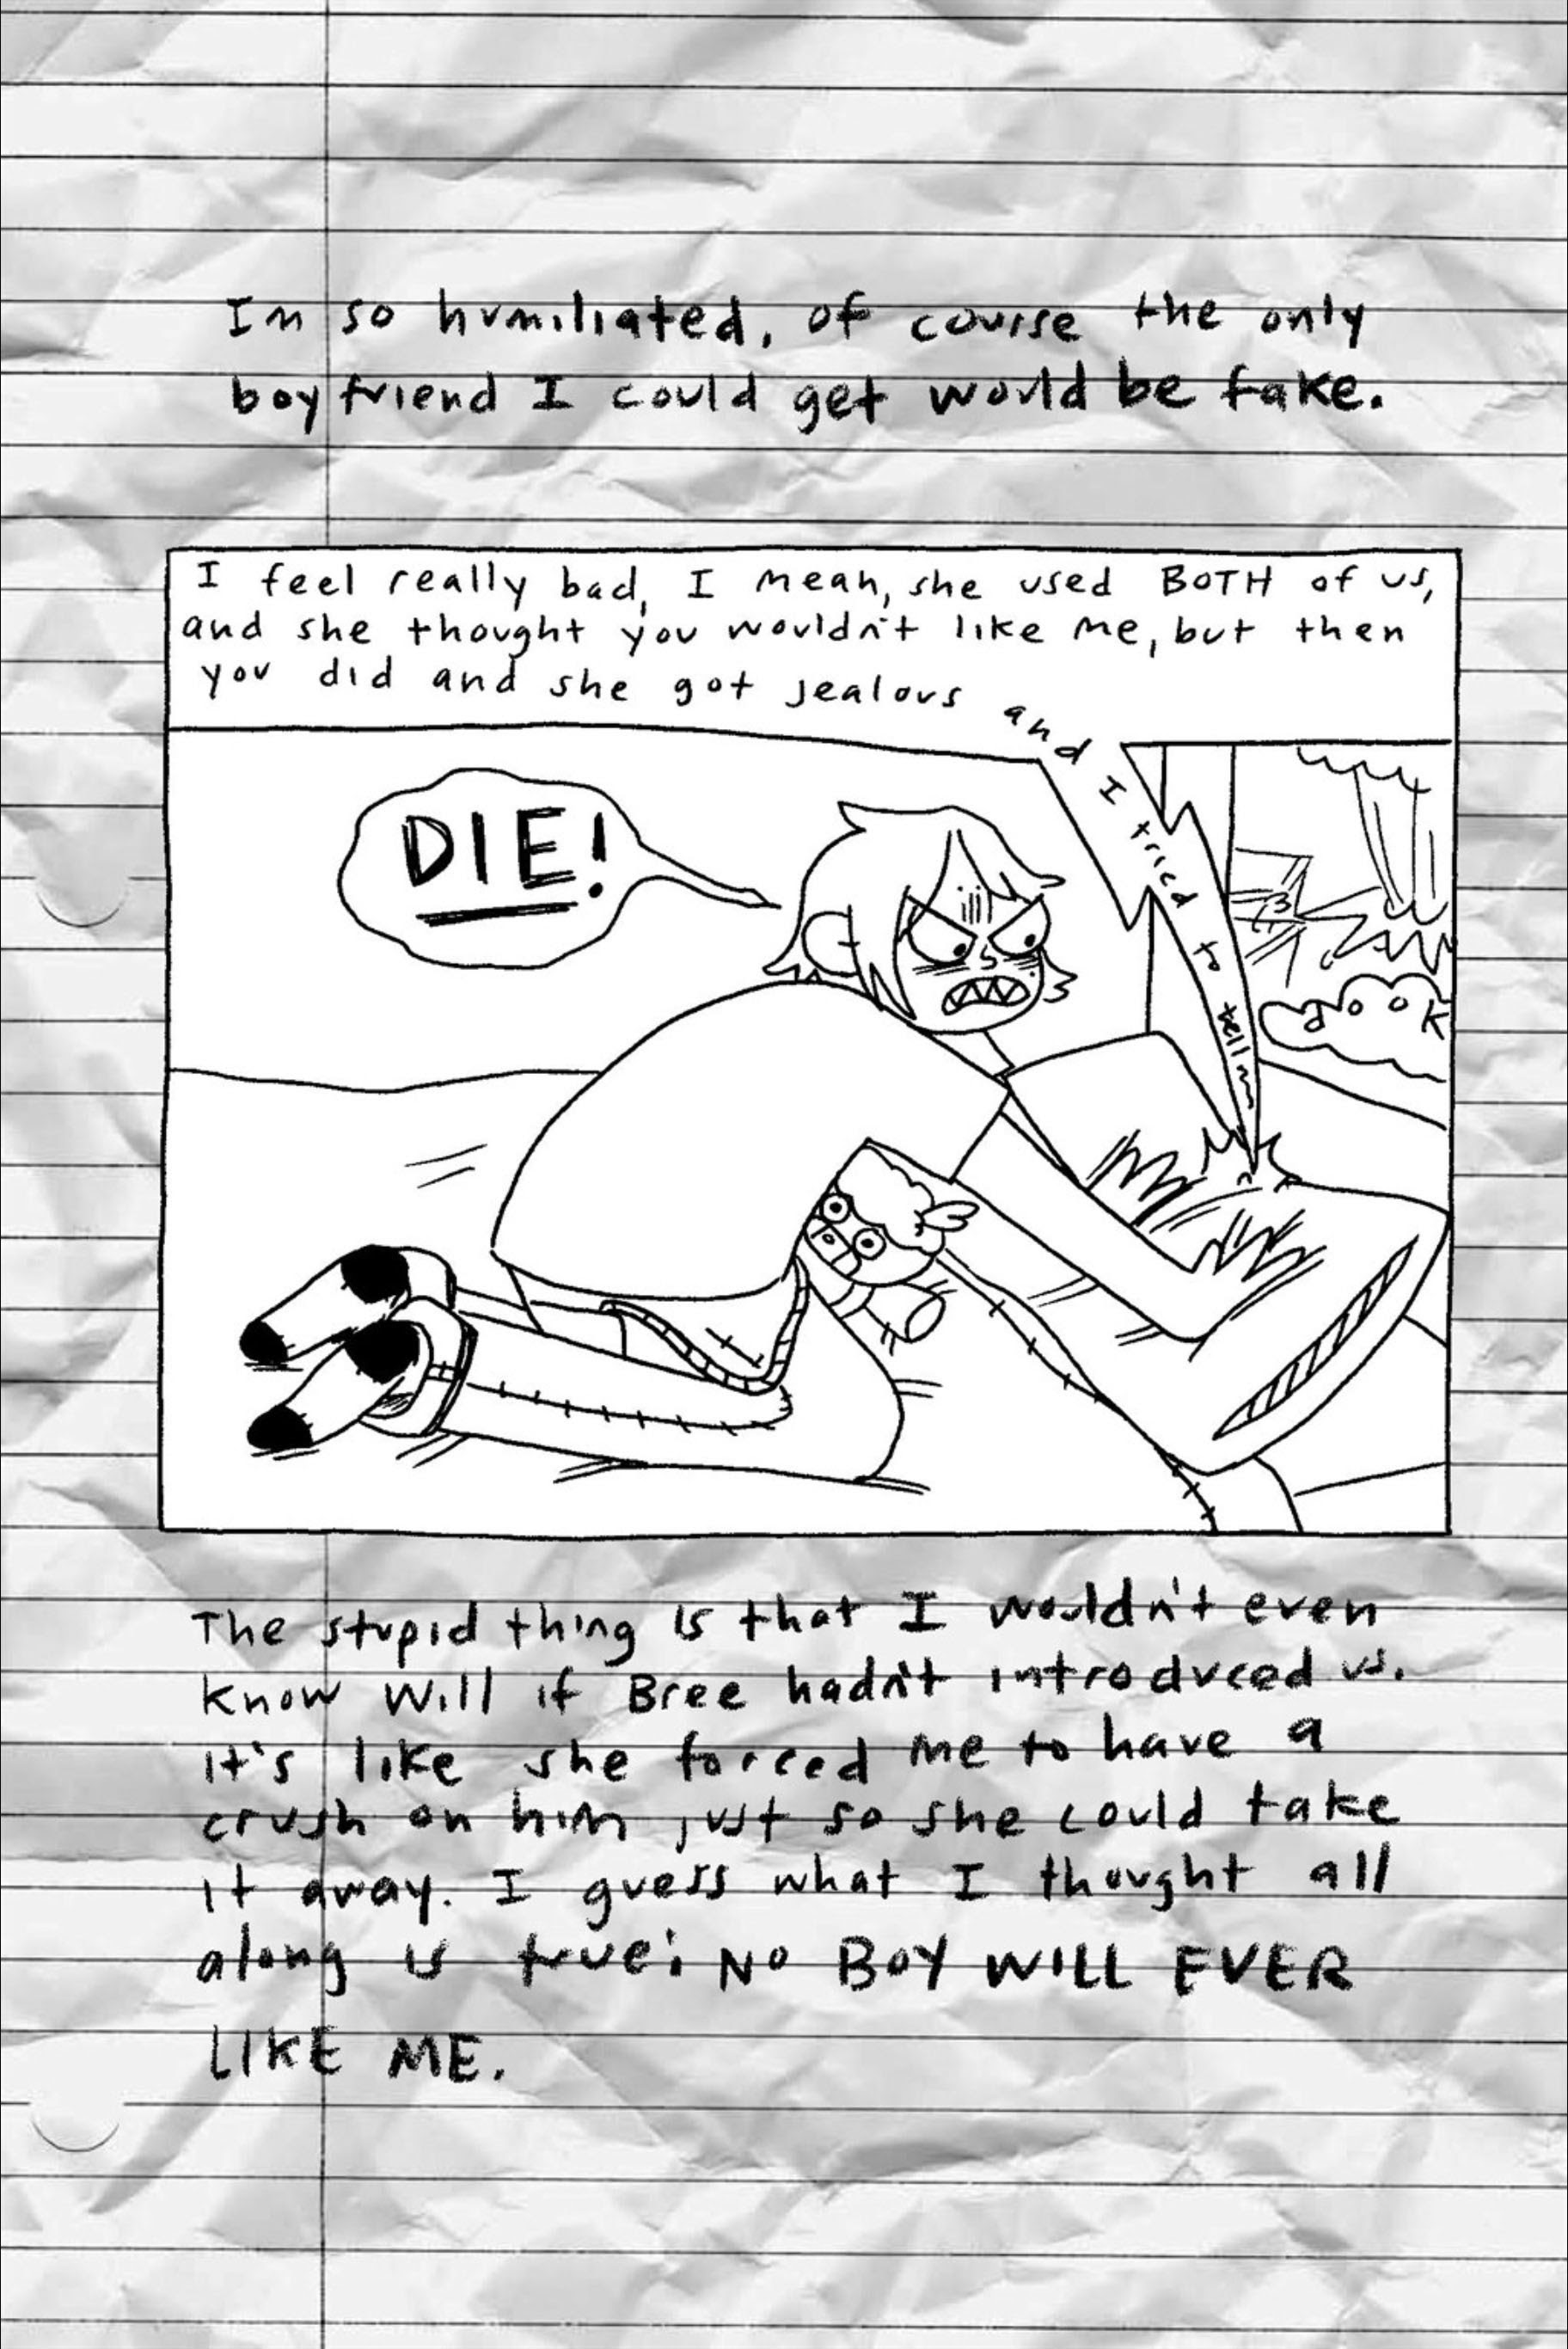 Im so humiliated, of course the only
boyfriend I could get would be fake.
I feel really bad, I mean, she used BOTH of us,
and she thought you wouldn't like me, but then
you did and she got jealous and I tried to tell
DIE!
The stupid thing is that I wouldn't even
know Will if Bree hadn't introduced us.
it's like she forced me to have a
crush on him just so she could take
it away. I guess what I thought all
along is true: NO BOY WILL EVER
LIKE ME.